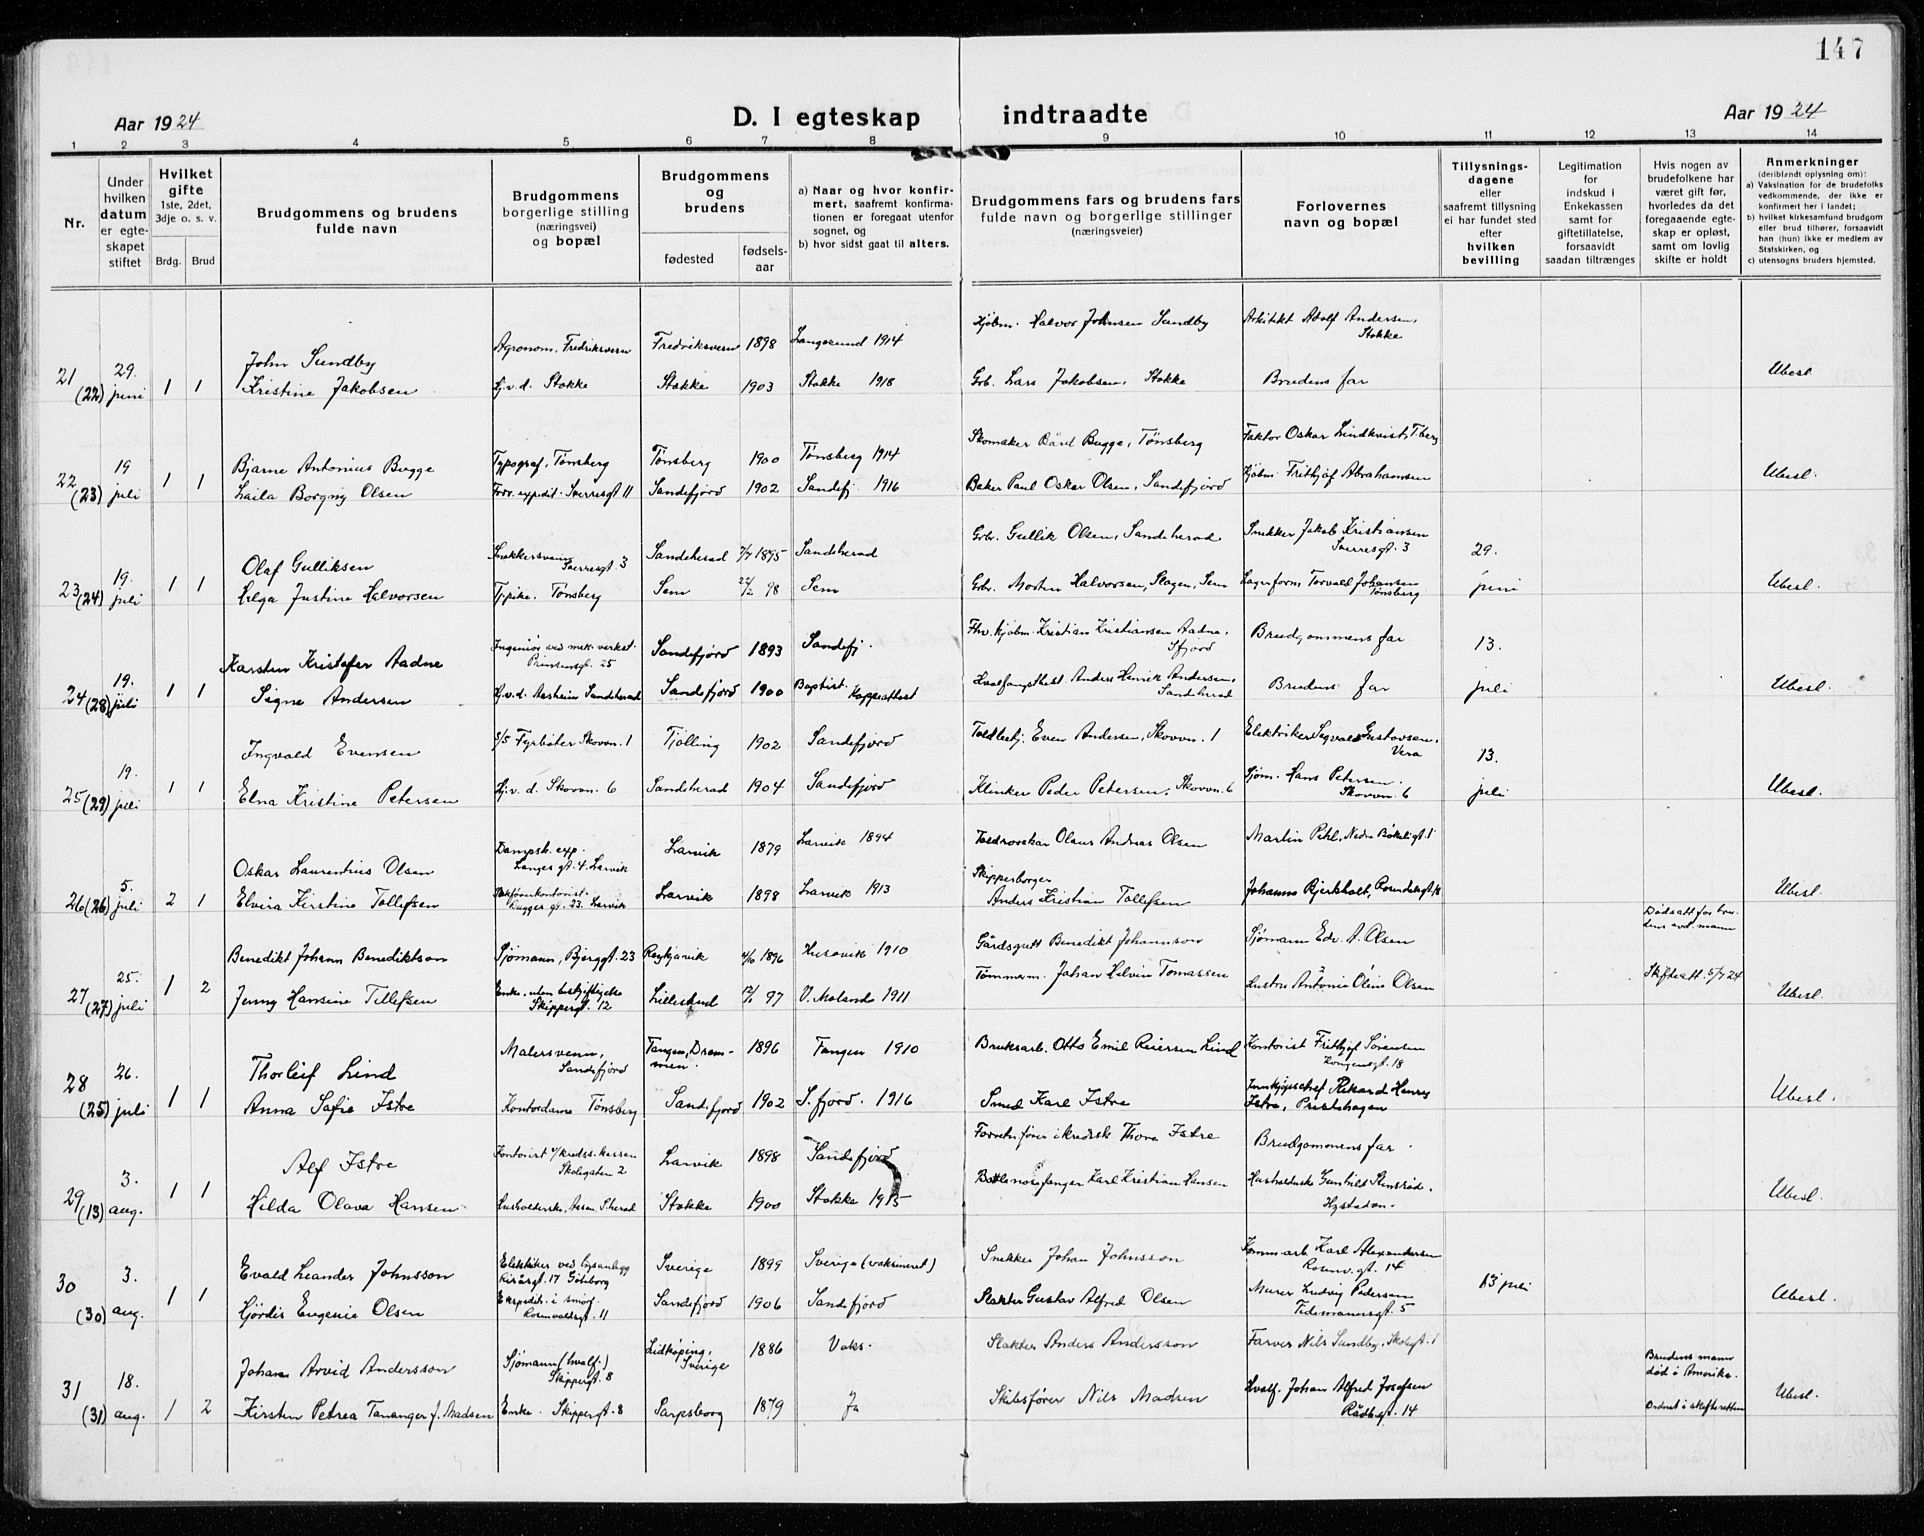 147
Aar 1924
D. I egteskap indtraadte
Aar 1924
1 2 3 4 5 6 7 8 9 10 11 12 13 14
Nr.
Under hvilken datum er egteskapet stiftet
Hvilket gifte 1ste, 2det, 3dje o. s. v.
Brdg. Brud
Brudgommens og brudens fulde navn
Brudgommens borgerlige stilling (næringsvei) og bopæl
Brudgommens og brudens
fødested
fødselsaar
a) Naar og hvor konfirmert, saafremt konfirmationen er foregaat utenfor sognet, og
b) hvor sidst gaat til alters.
Brudgommens fars og brudens fars fulde navn og borgerlige stillinger (næringsveier)
Forlovernes navn og bopæl
Tillysningsdagene eller saafremt tillysning ei har fundet sted efter hvilken bevilling
Legitimation for indskud i Enkekassen samt for giftetillatelse, forsaavidt saadan tiltrænges
Hvis nogen av brudefolkene har været gift før, hvorledes da det foregaaende egteskap er opløst, samt om lovlig skifte er holdt
Anmerkninger (deriblandt oplysning om):
a) Vaksination for de brudefolks vedkommende, der ikke er konfirmert her i landet;
b) hvilket kirkesamfund brudgom eller brud tilhører, forsaavidt han (hun) ikke er medlem av Statskirken, og
c) utensogns bruders hjemsted.
21 (22) 29. juni 1 1
John Sundby Agronom, Fredriksvern Fredriksvern 1898 Langesund 1914 Kjøbm. Halvor Johnsen Sundby Arkitekt Adolf Andersen, Stokke
Kristine Jakobsen Hj.v.d. Stokke Stokke 1903 Stokke 1918 Grb. Lars Jakobsen, Stokke Brudens far Ubesl.
22 (23) 19 juli 1 1
Bjarne Antonius Bugge Typograf, Tønsberg Tønsberg 1900 Tønsberg 1914 Skomaker Bård Bugge, Tønsberg Faktor Oskar Lindkvist, T.berg
Laila Borgny Olsen Forr. expedit. Sverresgt 11 Sandefjord 1902 Sandefj. 1916 Baker Paul Oskar Olsen, Sandefjord Kjøbm. Frithjof Abrahamsen Ubesl.
23 (24) 19. juli 1 1
Olaf Gulliksen Snekkersvenn Sverresgt. 3 Sandeherad 7/7 1895 Sandeherad Grb. Gullik Olsen, Sandeherad Snekker Jakob Kristiansen Sverresgt. 3 29. juni
Helga Justine Halvorsen Tjpike, Tønsberg Sem 22/2 98 Sem Grb. Morten Halvorsen, Slagen, Sem Lagerform Torvald Johansen Tønsberg Ubesl.
24 (28) 19. juli 1 1
Karsten Kristofer Aadne Ingeniør ved mek. verkst. Prinsensgt. 25 Sandefjord 1893 Sandefj. Fhv. kjøbm. Kristian Kristiansen Aadne, Sfjord Brudgommens far 13. juli
Signe Andersen Hj.v.d. Aasheim Sandeherad Sandefjord 1900 Baptist. Koppeattest Hvalfangstbest. Anders Henrik Andersen, Sandeherad Brudens far Ubesl.
25 (29) 19. juli 1 1
Ingvald Evensen S/S Fyrbøter Skovvn. 1 Tjølling 1902 Sandefjord Toldbetj. Even Andersen, Skovvn. 1 Elektriker Sigvald Gustavsen, Vera 13. juli
Elna Kristine Petersen Hj.v.d. Skovvn. 6 Sandeherad 1904 Sandefjord Klinker Peder Petersen, Skovvn. 6 Sjøm. Hans Petersen. Skovvn. 6 Ubesl.
26 (26) 5. juli 2 1
Oskar Laurentius Olsen Dampsk. exp. Langes gt. 4. Larvik Larvik 1879 Larvik 1894 Toldrorskar Olaus Andreas Olsen Martin Pehl, Nedre Bøkeligt. 1
Elvira Kirstine Tollefsen Larvik Larvik 1898 Larvik 1913 Skipperborger Anders Kristian Tollefsen Johannes Bjerkholt, Ubesl.
27 (27) 25. juli 1 2
Benedikt Johann Benediktson Sjømann, Bjerggt. 23 Reykjavik 4/10 1896 Husavik 1910 Gårdsgutt Benedikt Johannson Sjømann Edv. A. Olsen Dødsatt for brudens avd. mann
Jenny Hansine Tellefsen Enke, uten beskjeftigelse Skippergt. 12 Lillesand 12/6 97 V. Moland 1911 Tømmerm. Johan Helvin Tomassen Hustru Antonie Oline Olsen Skifteatt. 5/7 24 Ubesl.
28 (25) 26. juli 1 1
Thorleif Lind Malersvenn, Sandefjord Tangen, Drammen. 1896 Tangen 1910 Bruksarb. Otto Emil Reiersen Lind Kontorist Frithjof Sørensen Kongensgt. 18
Anna Sofie Istre Kontordame Tønsberg Sandefjord 1902 S.fjord. 1916 Smed Karl Istre Innkjøpschef Rikard Henry Istre, Prestehagen Ubesl.
29 (13) 3. aug. 1 1
Alf Istre Kontorist v/ kredss. kassen Skolegaten 2 Larvik 1898 Sandefjord Forretn.fører i kredssk Thora Istre Brudgommens far.
Hilda Olava Hansen Husholderske, Aasen, S.herad Stokke 1900 Stokke 1915 Bottlenosefanger Karl Kristian Hansen Husholderske Gunhild Stensrød, Hystadvn. Ubesl.
30 (30) 3. aug. 1 1
Evald Leander Johnsson Elektiker ved lysanlegg Göteborg Sverige 1899 Sverige (vaksineret) Snekker Johan Johnsson Kommarb. Karl Alexandersen Rosenv.gt. 14 13 juli
Hjørdis Eugenie Olsen Ekspedit. i smørf. Rosenvoldsgt. 11 Sandefjord 1906 Sandefjord Slakter Gustav Alfred Olsen Murer Ludvig Pedersen Tidemannsgt. 5 Ubesl.
31 (31) 18. aug. 1 2
Johan Arvid Andersson Sjømann (hvalf.) Skippergt. 8 Lidköping, Sverige 1886 Vaks. Slakter Anders Andersson Farver Nils Sundby, Skolegt. 1 Brudens mann død i Amerika.
Kirsten Petrea Tananger f. Madsen Enke. Skippergt. 8 Sarpsborg 1879 Ja Skibsfører Nils Madsen Hvalf. Johan Alfred Josefsen Rådhsgt. 14 Ordnet i skifteretten Ubesl.